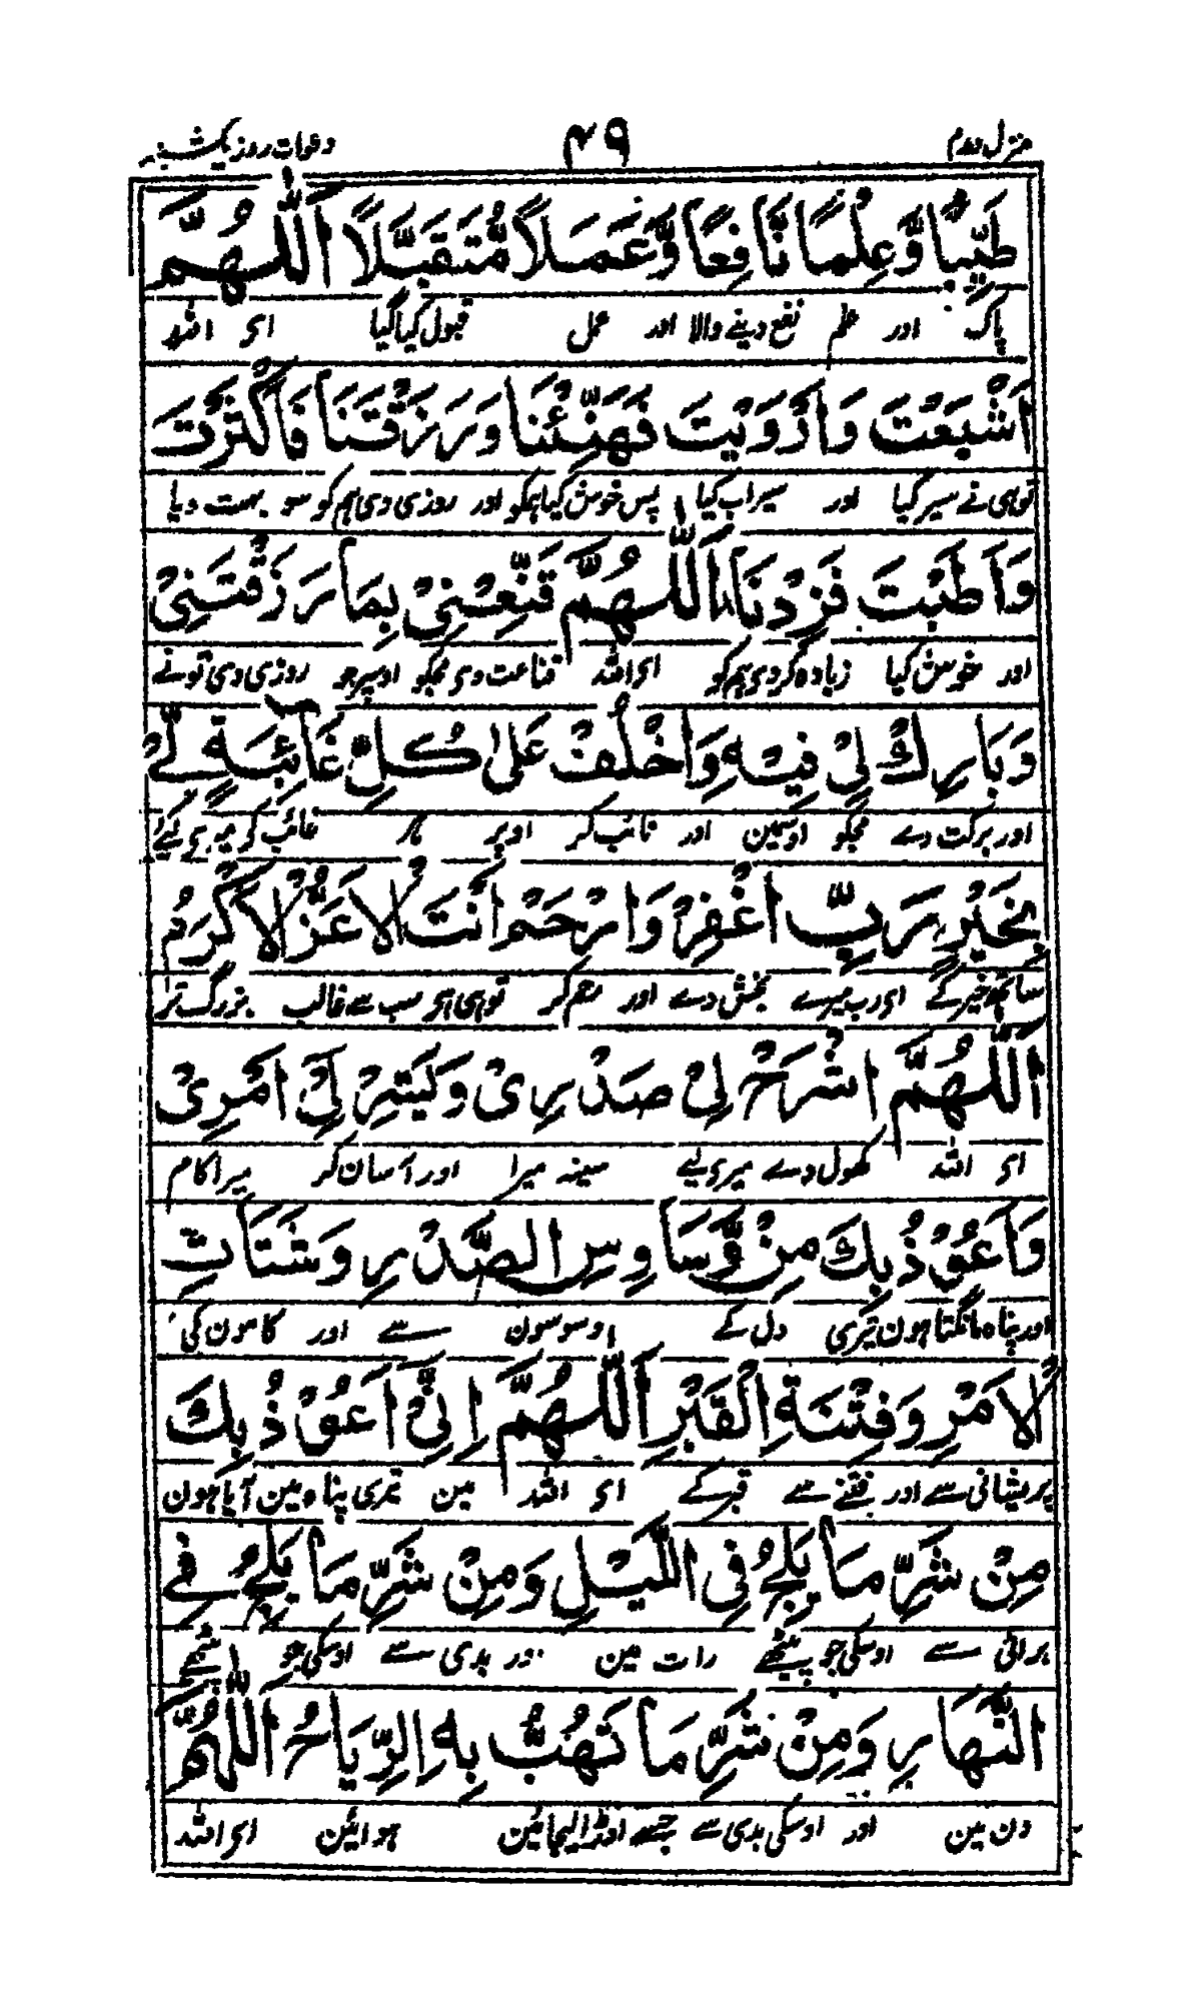 منزل دوم ۴۹ دعوات روز یکشنبه
طَيِّبًا وَّعِلْمًا نَّافِعًا وَّعَمَلًا مُّتَقَبَّلًا اَللّٰهُمَّ
پاک اور علم نفع دینے والا اور عمل قبول کیا گیا ای اللہ
اَشْبَعْتَ وَاَرْوَيْتَ فَهَنِّئْنَا وَرَزَقْتَنَا فَاَكْثَرْتَ
توہی نے سیر کیا اور سیراب کیا پس خوش کیا ہمکو اور روزی دی ہم کو سو بہت دیا
وَاَطَبْتَ فَزِدْنَا اَللّٰهُمَّ قَنِّعْنِيْ بِمَا رَزَقْتَنِيْ
اور خوش کیا زیادہ کر دی ہم کو ای اللہ قناعت دی مجکو اوپر جو روزی دی تو نے
وَبَارِكْ لِيْ فِيْهِ وَاخْلُفْ عَلٰى كُلِّ غَائِبَةٍ لِّيْ
اور برکت دے مجکو اوسمین اور نائب کر اوپر ہر غائب کو میری لیے
بِخَيْرٍ رَبِّ اغْفِرْ وَارْحَمْ اَنْتَ الْاَعَزُّ الْاَكْرَمُ
ساتھ خیر کے ای رب میرے بخش دے اور رحم کر توہی ہی سب سے غالب بزرگ تر
اَللّٰهُمَّ اشْرَحْ لِيْ صَدْرِيْ وَيَسِّرْ لِيْ اَمْرِيْ
ای اللہ کھول دے میری لیے سینہ میرا اور آسان کر میرا کام
وَاَعُوْذُ بِكَ مِنْ وَّسَاوِسِ الصَّدْرِ وَشَتَاتِ
اور پناہ مانگتا ہون تیری دل کے وسوسون سے اور کامون کی
الْاَمْرِ وَفِتْنَةِ الْقَبْرِ اَللّٰهُمَّ اِنِّيْ اَعُوْذُ بِكَ
پریشانی سے اور فتنے سے قبر کے ای اللہ مین تیری پناہ مین آیا ہون
مِنْ شَرِّ مَا يَلِجُ فِي اللَّيْلِ وَمِنْ شَرِّ مَا يَلِجُ فِي
برائی سے اوسکی جو پیٹھے رات مین اور بدی سے اوسکی جو پیٹھے
النَّهَارِ وَمِنْ شَرِّ مَا تَهُبُّ بِهِ الرِّيَاحُ اَللّٰهُمَّ
دن مین اور اوسکی بدی سے جسے اوڑا لیجائین ہوائین ای اللہ